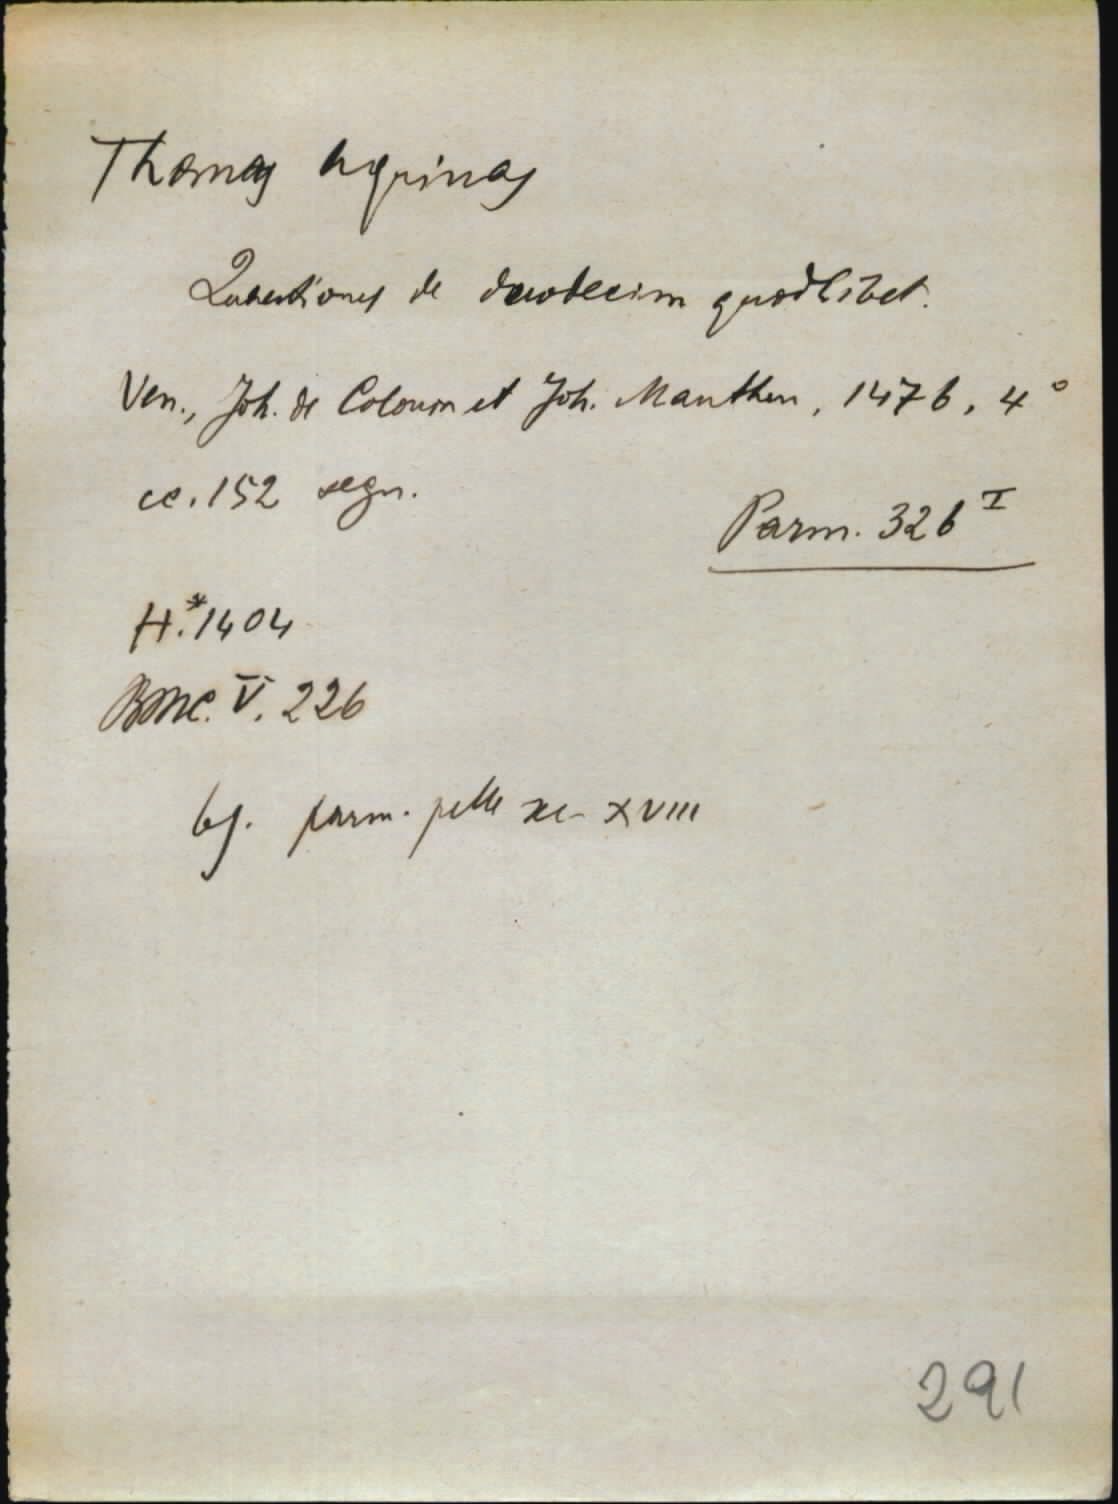 Thomas Aquinas
Quaestiones de duodecim quodlibet.
Ven., Joh. de Colonia et Joh. Manthen, 1476, 4°
cc. 152 segn.
Parm. 326 I
H.*1404
BMC. V. 226
leg. parm. pelle sec. XVIII
291